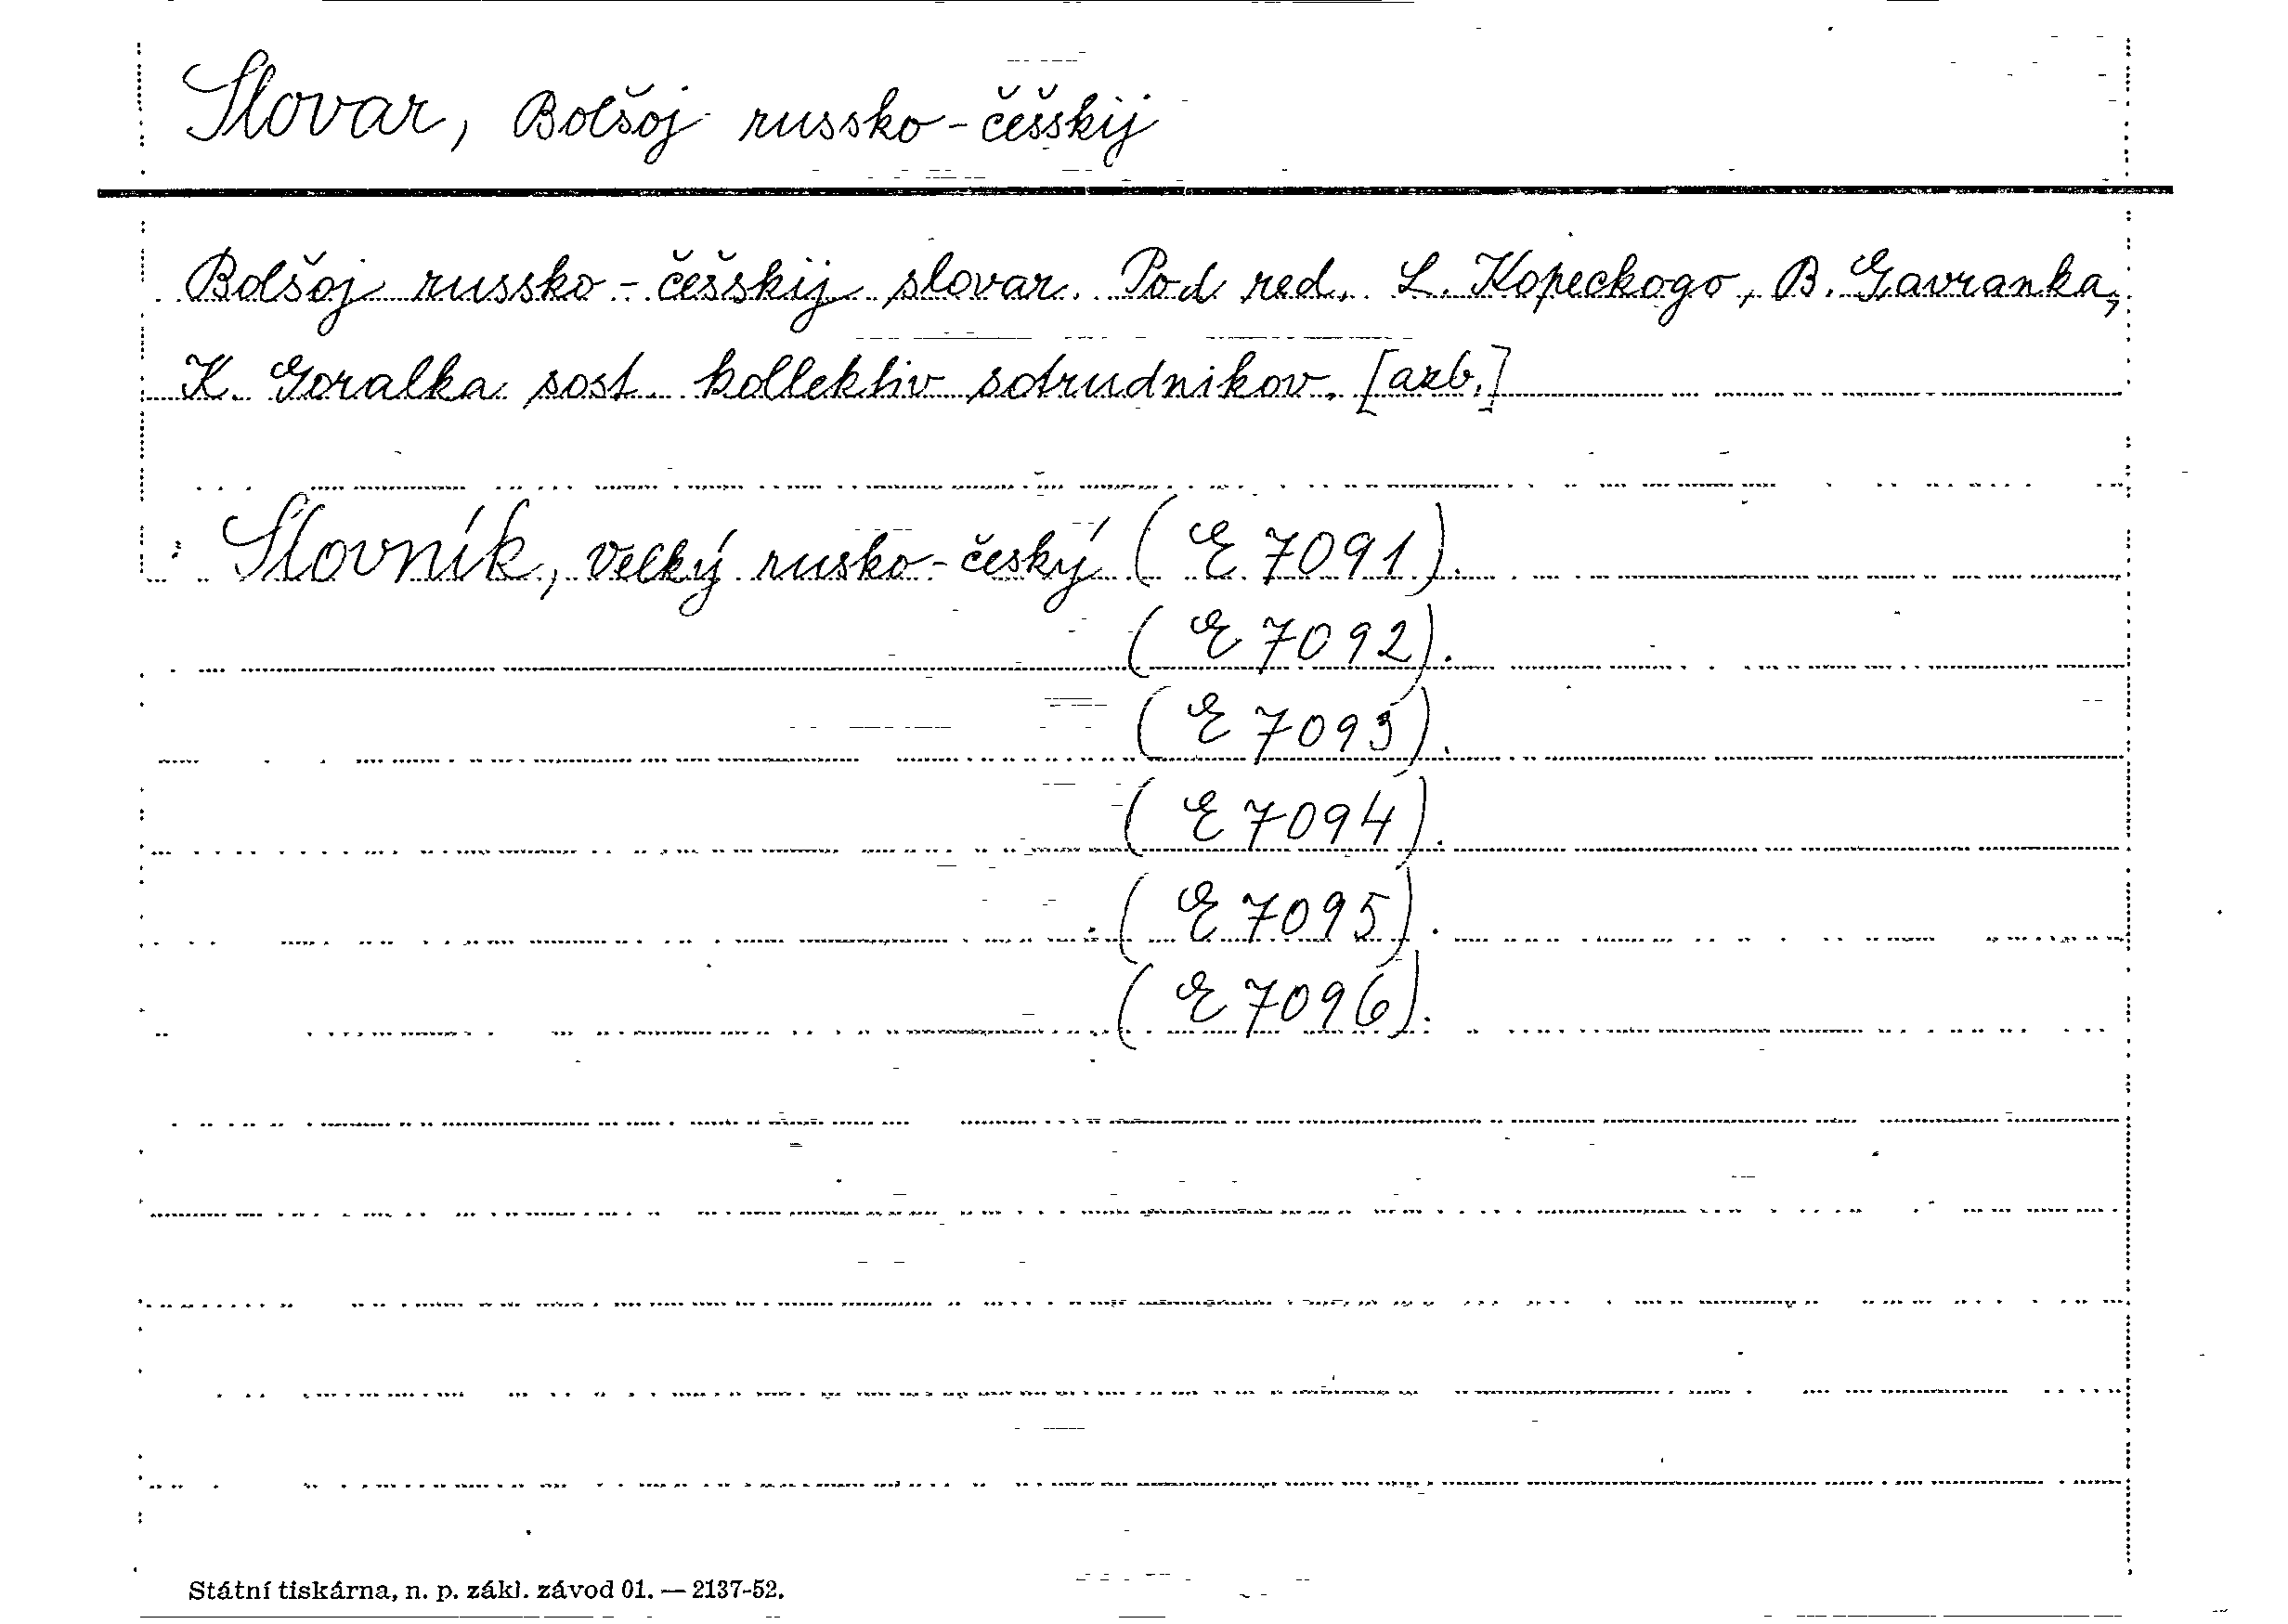 Slovar, Bolšoj russko-češskij
Bolšoj russko-češskij slovar. Pod red. L. Kopeckogo, B. Gavranka,
K. Goralka sost. kollektiv sotrudnikov. [azb.]
Slovník, velký rusko-český (E 7091).
(E 7092).
(E 7093).
(E 7094).
(E 7095).
(E 7096).
Státní tiskárna, n. p. zákl. závod 01. — 2137-52.